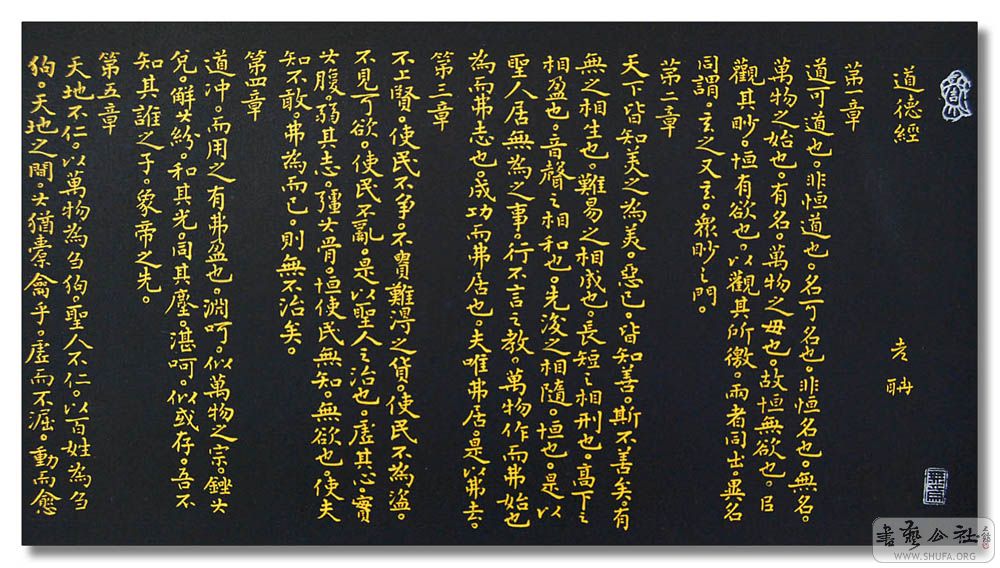 道德經 老聃
第一章
道可道也。非恒道也。名可名也。非恒名也。無名。
萬物之始也。有名。萬物之母也。故恒無欲也。㠯
觀其眇。恒有欲也。以觀其所徼。兩者同出。異名
同謂。玄之又玄。衆眇之門。
第二章
天下皆知美之為美。惡已。皆知善。斯不善矣。有
無之相生也。難易之相成也。長短之相刑也。高下之
相盈也。音聲之相和也。先後之相隨。恒也。是以
聖人居無為之事。行不言之教。萬物作而弗始也
為而弗志也。成功而弗居也。夫唯弗居。是以弗去。
第三章
不上賢。使民不争。不貴難得之貨。使民不為盗。
不見可欲。使民不亂。是以聖人之治也。虛其心。實
其腹。弱其志。彊其骨。恒使民無知。無欲也。使夫
知不敢。弗為而已。則無不治矣。
第四章
道沖。而用之有弗盈也。淵呵。似萬物之宗。銼其
兌。解其紛。和其光。同其塵。湛呵。似或存。吾不
知其誰之子。象帝之先。
第五章
天地不仁。以萬物為芻狗。聖人不仁。以百姓為芻
狗。天地之間。其猶橐籥乎。虛而不淈。動而愈
書藝公社
WWW.SHUFA.ORG